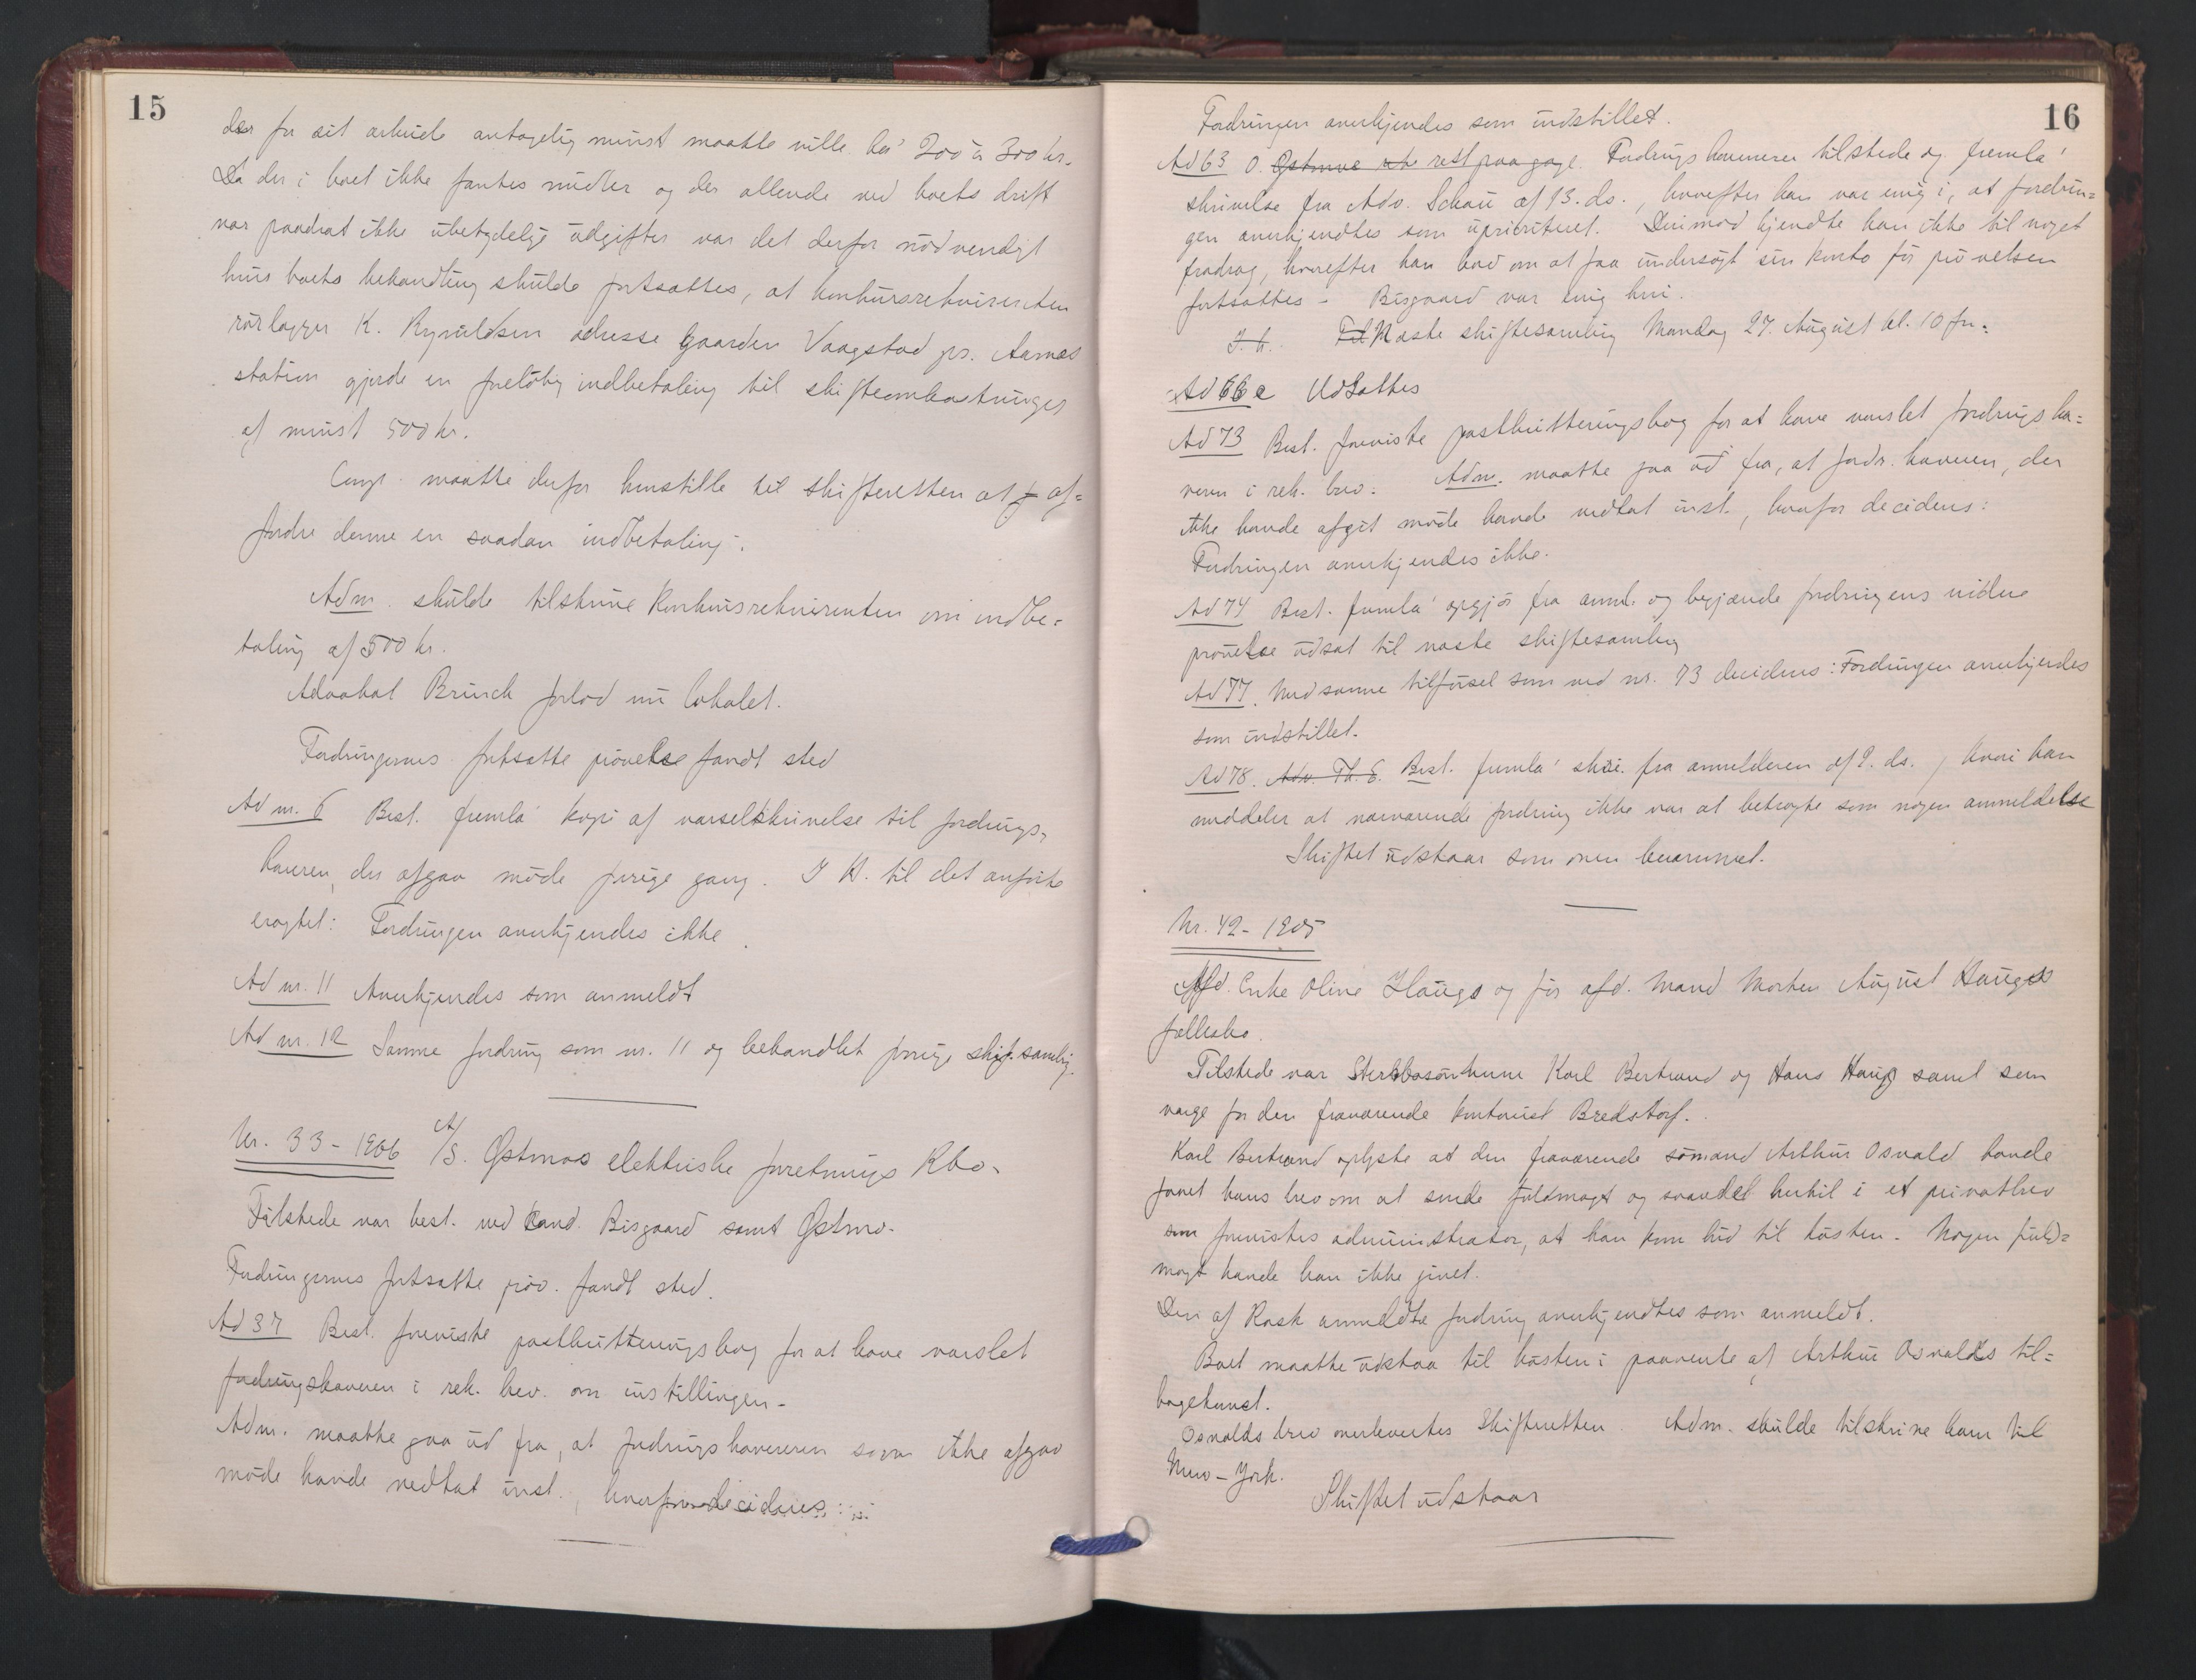 15
der for sit arbeide antagelig minst maatte ville ha' 200 à 300 kr.
Da der i boet ikke fantes midler og der allerede ved boets drift
var paadrat ikke ubetydelige udgifter var det derfor nödvendigt
hvis boets behandling skulde fortsattes, at konkursrekvirenten
rörlægger K. adresse gaarden Vaagstad pr. Aarnes
station gjorde en foreløbig indbetaling til skifteomkostninger
af minst 500 kr.
Comp. maatte derfor henstille til skifteretten at af=
fordre denne en saadan indbetaling.
Adm. skulde tilskrive konkursrekvirenten om indbe=
taling af 500 kr.
Advokat Brinch forlod nu lokalet.
Fordringernes fortsatte prövelse fandt sted
Ad nr. 6 Best. fremla' kopi af varselskrivelse til fordrings=
haveren, der afgav möde forrige gang. I H. til det anførte
eragtet: Fordringen anerkjendes ikke.
Ad nr. 11 Anerkjendes som anmeldt
Ad nr. 12 Samme fordring som nr. 11 og behandlet forrige skift.samling.
Nr. 33 - 1906 A/S. Østmos elektriske forretnings Kbo.
Tilstede var best. ved Cand. Bisgaard samt Østmo.
Fordringernes fortsatte pröv. fandt sted.
Ad 37 Best. foreviste postkvitteringsbog for at have varslet
fordringshaveren i rek. brev. om instillingen.
Adm. maatte gaa ud fra, at fordringshaveren som ikke afgav
möde havde vedtat inst., hvorfor decideres:
16
Fordringen anerkjendes som indstillet.
Ad 63 O. Østmoe rest paa gage. Fordringshaveren tilstede og fremla'
skrivelse fra Adv. Schou af 13. ds., hvorefter han var enig i, at fordrin=
gen anerkjendtes som uprioriteret. Derimod kjendte han ikke til noget
fradrag, hvorefter han bad om at faa undersøgt sin konto för prövelsen
fortsattes. Bisgaard var enig heri.
Næste skiftesamling Mandag 27. August kl. 10 for=
Ad 66 e Udsattes
Ad 73 Best. foreviste postkvitteringsbog for at have varslet fordringsha=
veren i rek. brev. Adm. maatte gaa ud fra, at fordr. haveren, der
ikke havde afgit möde havde vedtat inst., hvorfor decideres:
Fordringen anerkjendes ikke.
Ad 74 Best. fremla' opgjör fra anm. og begjærede fordringens videre
prövelse udsat til næste skiftesamling
Ad 77. Med samme tilförsel som ved nr. 73 decideres: Fordringen anerkjendes
som indstillet.
Ad 78. Adv. Th. E. Best. fremla' skriv. fra anmelderen af 2. ds., hvori han
meddeler at nærværende fordring ikke var at betragte som nogen anmeldelse
Skiftet udstaar som oven berammet.
Nr. 42 - 1905
Afd. Enke Oline Haugs og för afd. Mand Morten August Haugs
fællesbo.
Tilstede var Sterkbosönnerne Karl Bertrand og Hans Haug samt som
verge for den fraværende kontorist Bredstorf.
Karl Bertrand oplyste at den fraværende sömand Arthur Osvald havde
faaet hans brev om at sende fuldmagt og svaret hertil i et privatbrev
som forevistes administrator, at han kom hid til hösten. Nogen fuld=
magt havde han ikke givet.
Den af Rask anmeldte fordring anerkjendtes som anmeldt.
Boet maatte udstaa til hösten i paavente af Arthur Osvalds til=
bagekomst.
Osvalds brev overleveres Skifteretten. Adm. skulde tilskrive ham til
New-York.
Skiftet udstaar